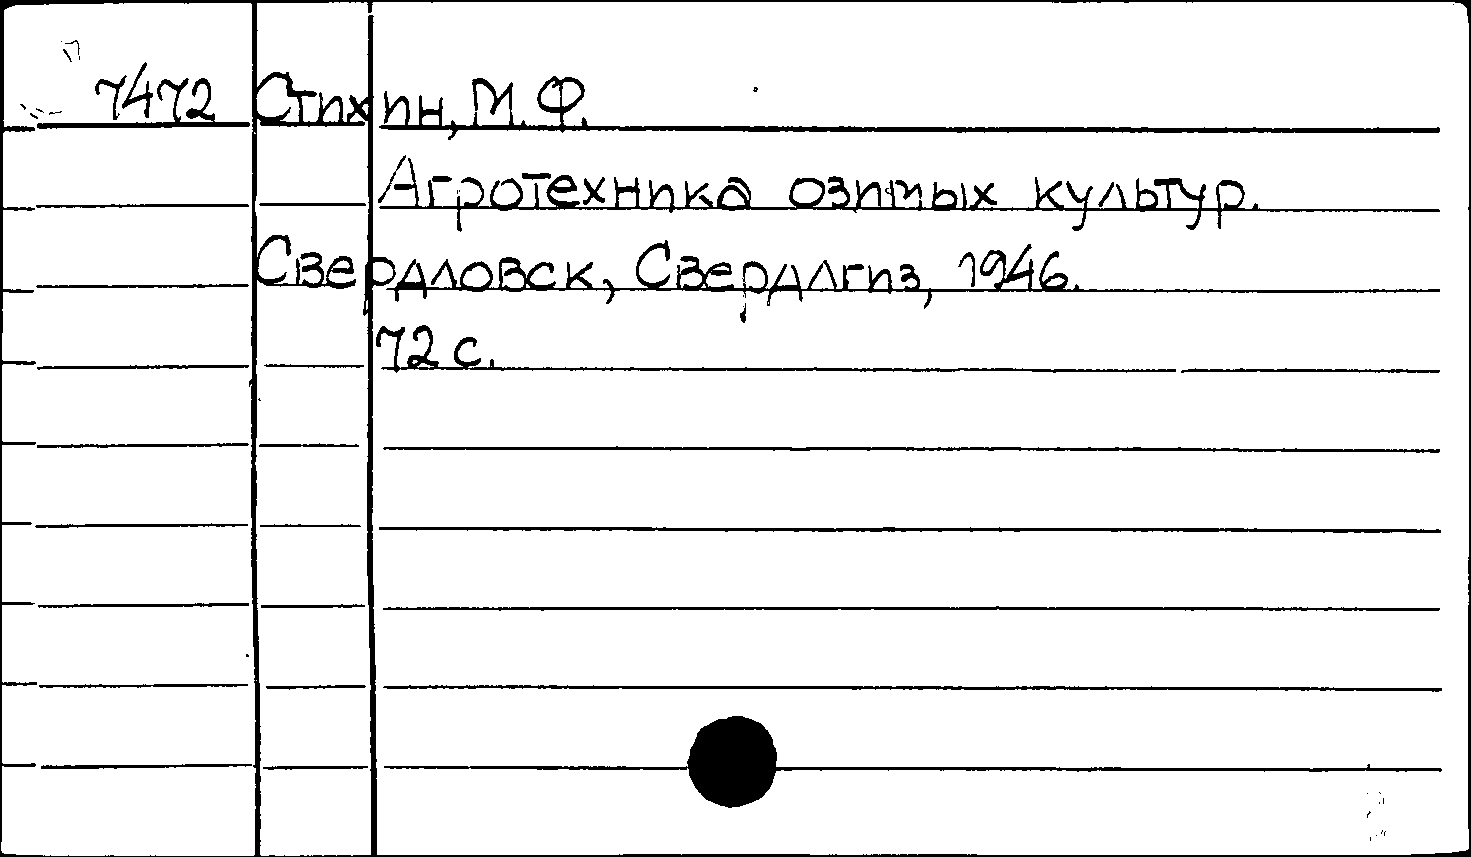 7472 Стихин, М. Ф.
Агротехника озимых культур.
Свердловск, Свердлгиз, 1946.
72 с.